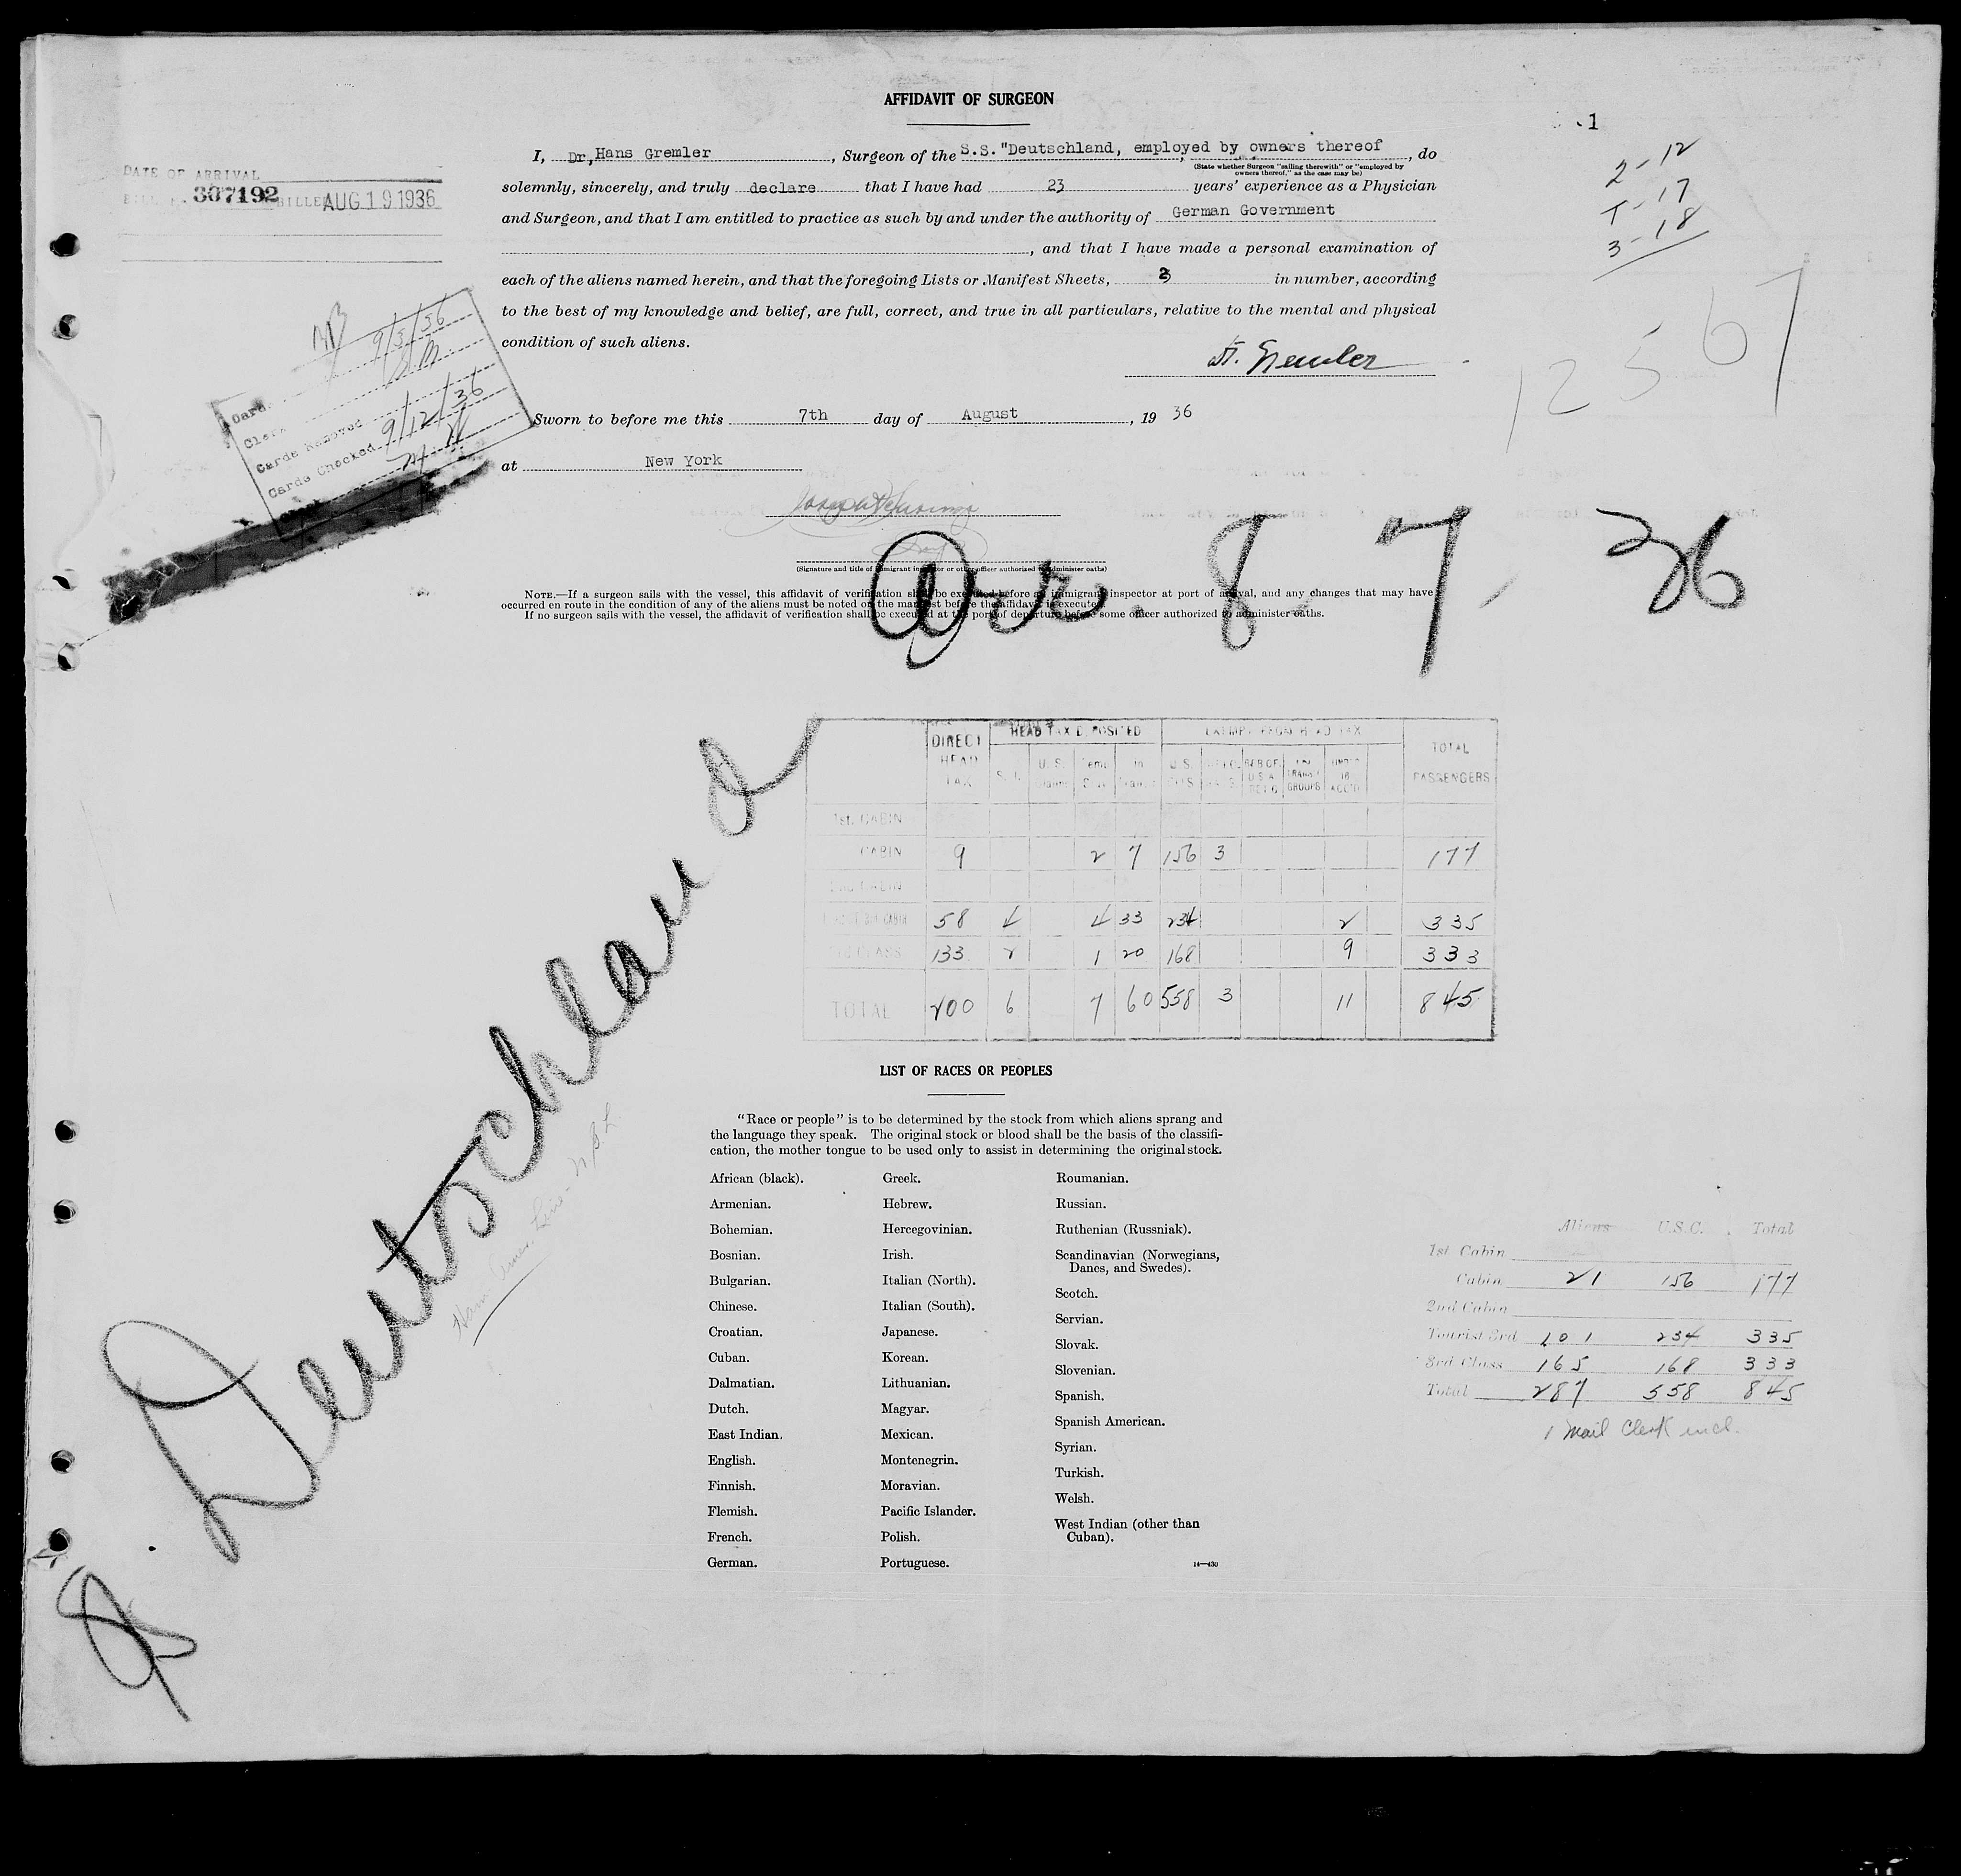 AFFIDAVIT OF SURGEON
1
I, Dr, Hans Gremler, Surgeon of the S.S. "Deutschland, employed by owners thereof, do
(State whether Surgeon "sailing therewith" or "employed by
owners thereof," as the case may be)
solemnly, sincerely, and truly declare that I have had 23 years' experience as a Physician
and Surgeon, and that I am entitled to practice as such by and under the authority of German Government
, and that I have made a personal examination of
each of the aliens named herein, and that the foregoing Lists or Manifest Sheets, 3 in number, according
to the best of my knowledge and belief, are full, correct, and true in all particulars, relative to the mental and physical
condition of such aliens.
H. Gremler
Sworn to before me this 7th day of August, 19 36
at New York
(Signature and title of immigrant inspector or other officer authorized to administer oaths)
NOTE.—If a surgeon sails with the vessel, this affidavit of verification shall be executed before an immigrant inspector at port of arrival, and any changes that may have
occurred en route in the condition of any of the aliens must be noted on the manifest before the affidavit is executed.
If no surgeon sails with the vessel, the affidavit of verification shall be executed at the port of departure before some officer authorized to administer oaths.
DATE OF ARRIVAL
307192 BILLED AUG 19 1936
9/3/36
Card
Clerk
Cards Removed 9/12/36
Cards Checked
2-12
T-17
3-18
12567
Arr. 8 - 7 - 36
S. Deutschland
Ham. Amer. Line - N.G.L.
DIRECT HEAD TAX
HEAD TAX DEPOSITED
EXEMPT FROM HEAD TAX
TOTAL PASSENGERS
1st. CABIN
CABIN 9 2 7 156 3 177
2ND CABIN
TOURIST 3RD CABIN 58 4 4 33 234 2 335
3RD CLASS 133 2 1 20 168 9 333
TOTAL 200 6 7 60 558 3 11 845
LIST OF RACES OR PEOPLES
"Race or people" is to be determined by the stock from which aliens sprang and
the language they speak. The original stock or blood shall be the basis of the classifi-
cation, the mother tongue to be used only to assist in determining the original stock.
African (black).
Armenian.
Bohemian.
Bosnian.
Bulgarian.
Chinese.
Croatian.
Cuban.
Dalmatian.
Dutch.
East Indian.
English.
Finnish.
Flemish.
French.
German.
Greek.
Hebrew.
Hercegovinian.
Irish.
Italian (North).
Italian (South).
Japanese.
Korean.
Lithuanian.
Magyar.
Mexican.
Montenegrin.
Moravian.
Pacific Islander.
Polish.
Portuguese.
Roumanian.
Russian.
Ruthenian (Russniak).
Scandinavian (Norwegians,
Danes, and Swedes).
Scotch.
Servian.
Slovak.
Slovenian.
Spanish.
Spanish American.
Syrian.
Turkish.
Welsh.
West Indian (other than
Cuban).
14—430
Aliens U.S.C. Total
1st Cabin
Cabin 21 156 177
2nd Cabin
Tourist 3rd 101 234 335
3rd Class 165 168 333
Total 287 558 845
1 Mail Clerk incl.